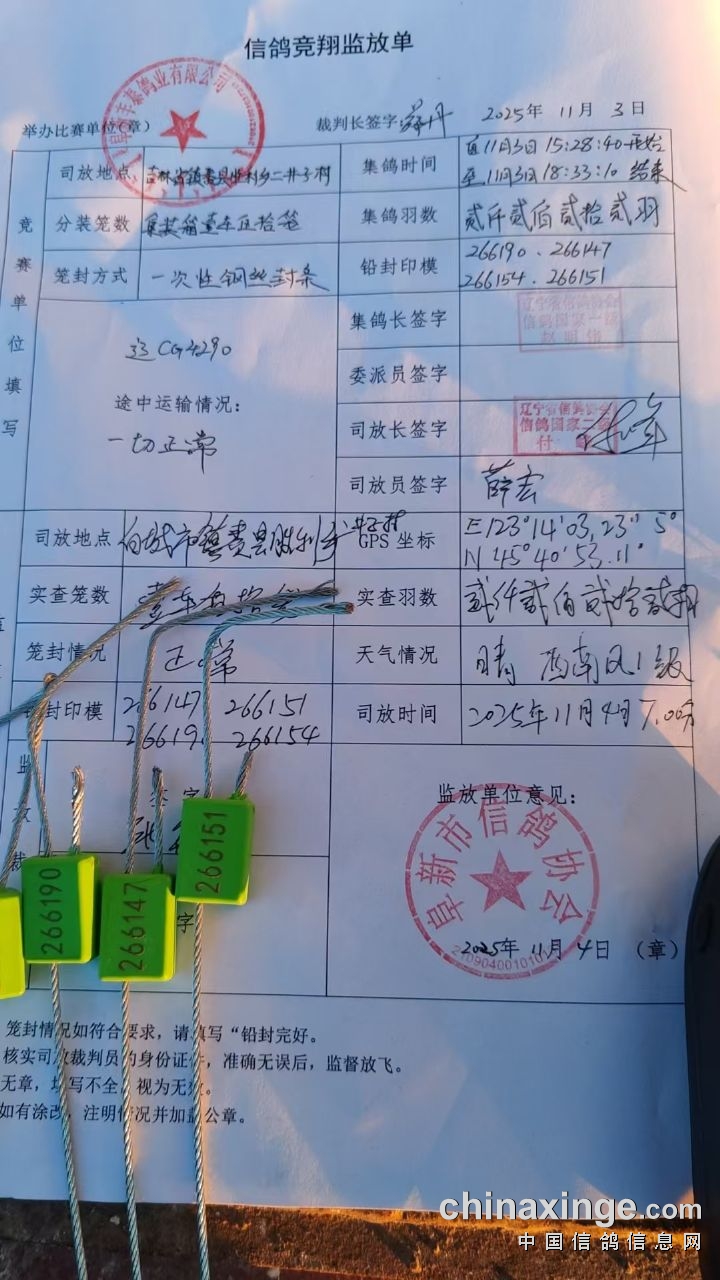 信鸽竞翔监放单
举办比赛单位(章)
裁判长签字
2025年 11月 3日
竞赛单位填写
司放地点
集鸽时间
自11月3日 15:28:40 开始
至11月3日 18:33:10 结束
分装笼数
集鸽羽数
贰仟贰佰贰拾贰羽
笼封方式
一次性钢丝封条
铅封印模
266190、266147
266154、266151
集鸽长签字
辽宁省信鸽协会
信鸽国家一级
委派员签字
途中运输情况：
一切正常
司放长签字
辽宁省信鸽协会
信鸽国家二级
司放员签字
薛宏
司放地点
GPS 坐标
E123°14′03.23″ 5°
N 45°40′53.11″
实查笼数
实查羽数
贰仟贰佰贰拾贰羽
笼封情况
正常
天气情况
晴 西南风1级
封印模
266147 266151
26619 266154
司放时间
2025年11月4日 7:00分
监
裁
签字
字
监放单位意见：
阜新市信鸽协会
2025年 11月 4日 （章）
266190
266147
266151
笼封情况如符合要求，请填写“铅封完好。
核实司放裁判员的身份证件，准确无误后，监督放飞。
无章，填写不全，视为无效。
如有涂改，注明情况并加盖公章。
chinaxinge.com
中国信鸽信息网